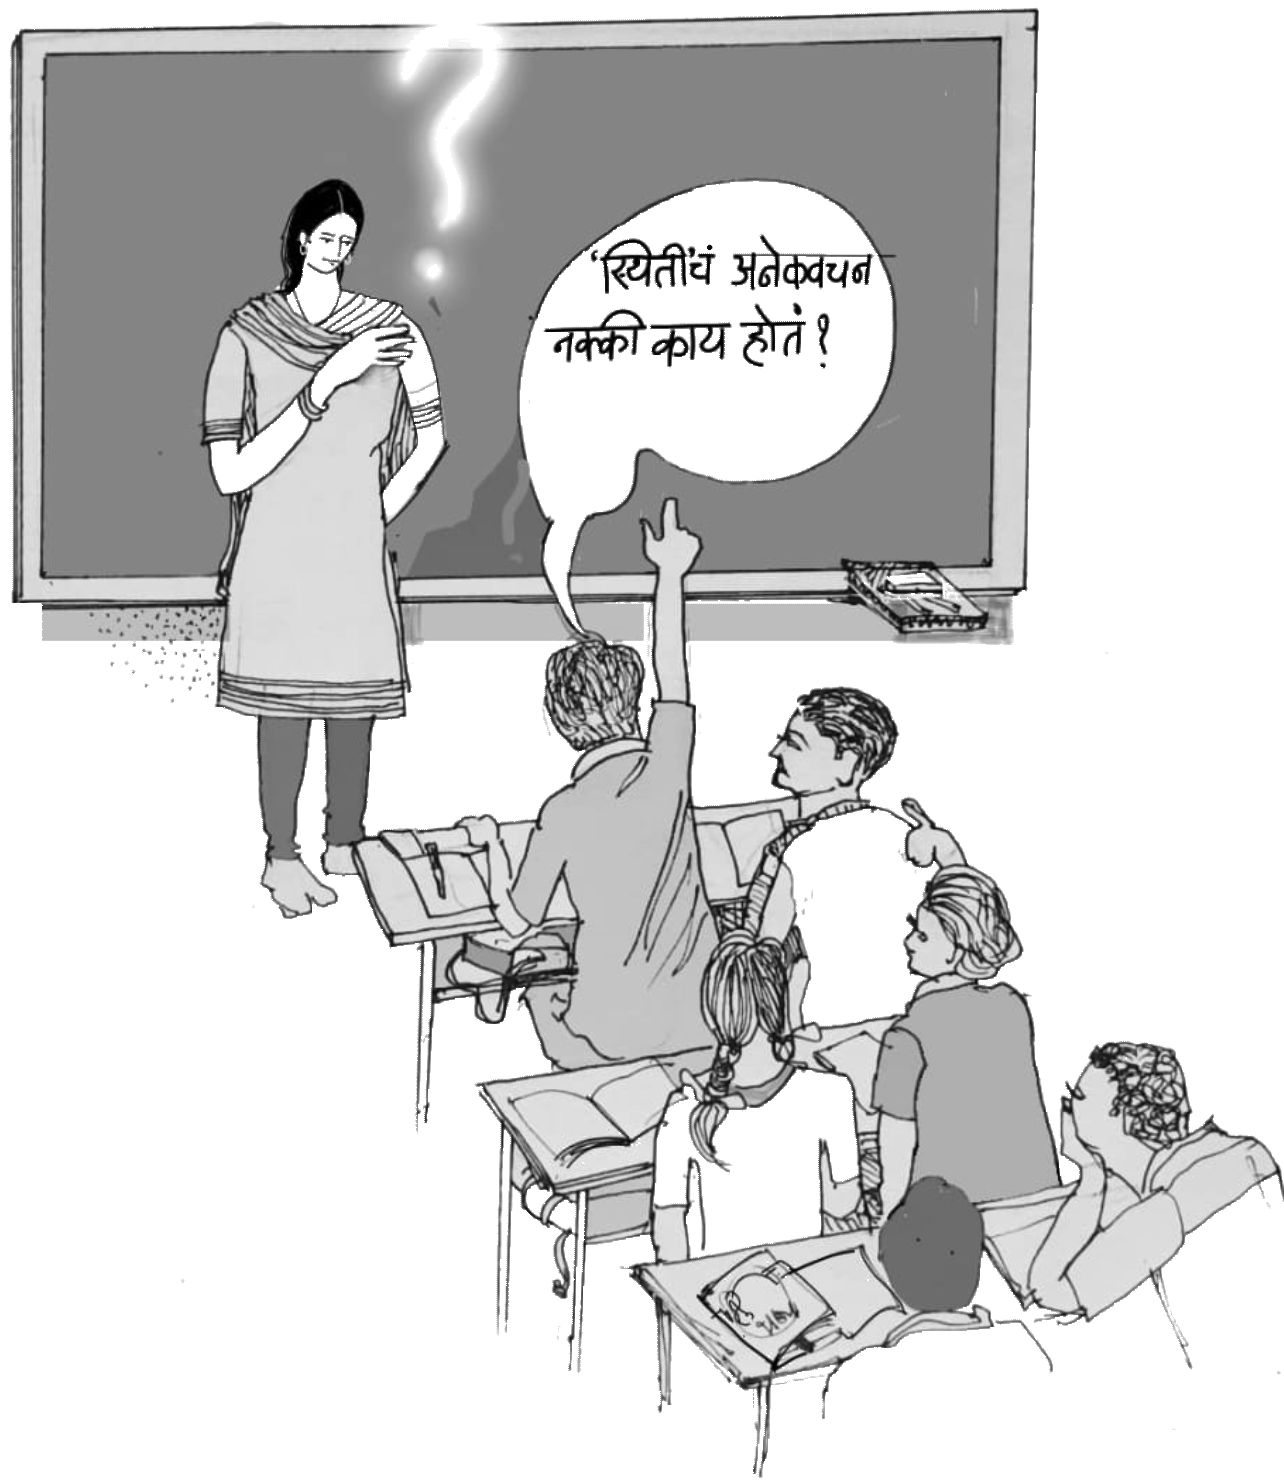 ‘स्थिती’चं अनेकवचन
नक्की काय होतं?